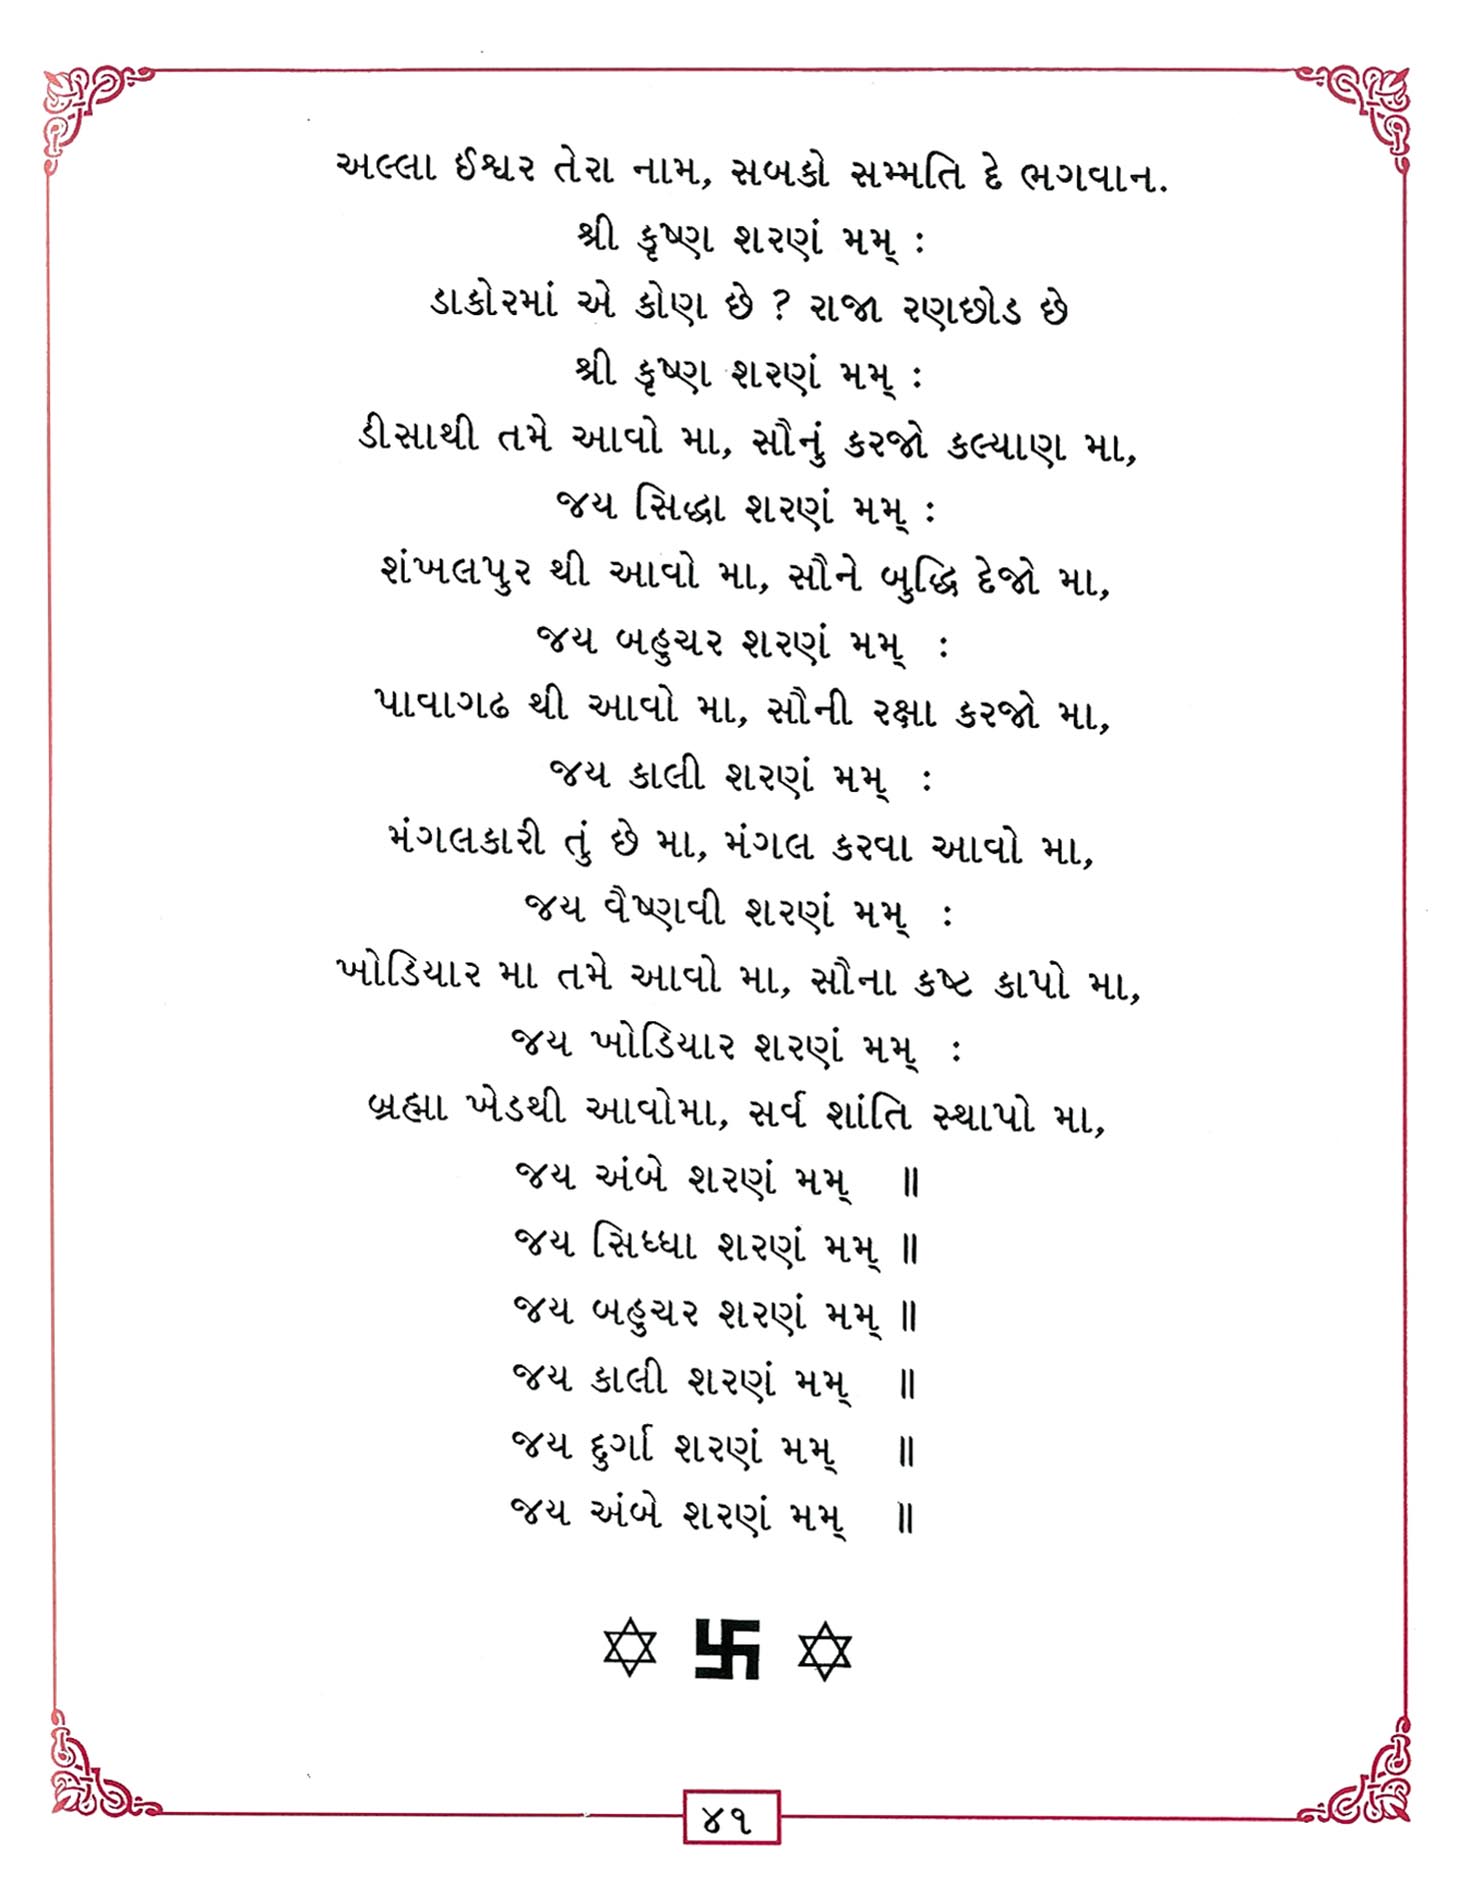 અલ્લા ઈશ્વર તેરા નામ, સબકો સમ્મતિ દે ભગવાન.
શ્રી કૃષ્ણ શરણં મમ્ :
ડાકોરમાં એ કોણ છે ? રાજા રણછોડ છે
શ્રી કૃષ્ણ શરણં મમ્ :
ડીસાથી તમે આવો મા, સૌનું કરજો કલ્યાણ મા,
જય સિદ્ધા શરણં મમ્ :
શંખલપુર થી આવો મા, સૌને બુદ્ધિ દેજો મા,
જય બહુચર શરણં મમ્ :
પાવાગઢ થી આવો મા, સૌની રક્ષા કરજો મા,
જય કાલી શરણં મમ્ :
મંગલકારી તું છે મા, મંગલ કરવા આવો મા,
જય વૈષ્ણવી શરણં મમ્ :
ખોડિયાર મા તમે આવો મા, સૌના કષ્ટ કાપો મા,
જય ખોડિયાર શરણં મમ્ :
બ્રહ્મા ખેડથી આવોમા, સર્વ શાંતિ સ્થાપો મા,
જય અંબે શરણં મમ્ ॥
જય સિધ્ધા શરણં મમ્ ॥
જય બહુચર શરણં મમ્ ॥
જય કાલી શરણં મમ્ ॥
જય દુર્ગા શરણં મમ્ ॥
જય અંબે શરણં મમ્ ॥
૪૧